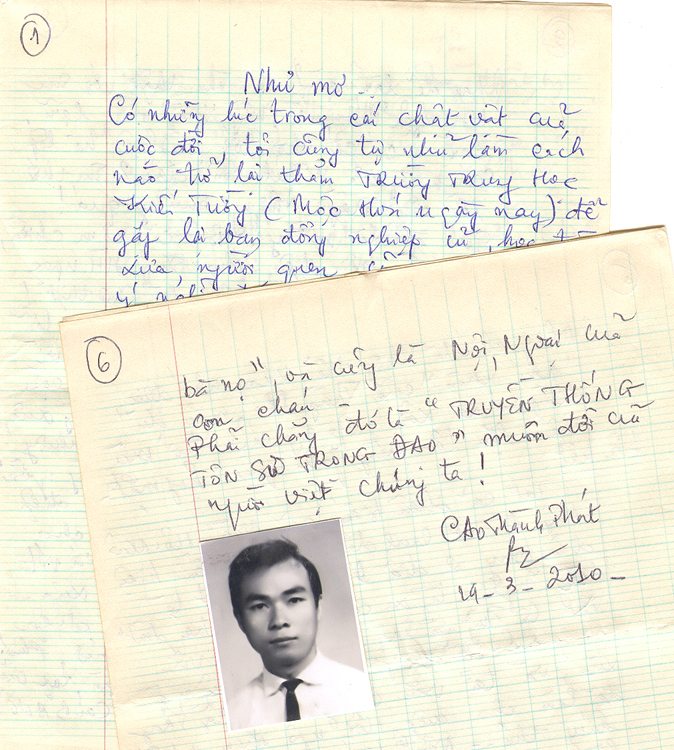 1
Như mơ...
Có những lúc trong cái chật vật của
cuộc đời, tôi cũng tự nhủ làm cách
nào trở lại thăm Trường Trung Học
Kiến Tường (Mộc Hóa ngày nay) để
gặp lại bạn đồng nghiệp cũ, học
xưa, người quen
6
bà nọ", và cũng là Nội, Ngoại của
con, cháu
Phải chăng đó là "TRUYỀN THỐNG
TÔN SƯ TRỌNG ĐẠO" muôn đời của
người việt chúng ta!
CAO Thành Phát
19-3-2010-